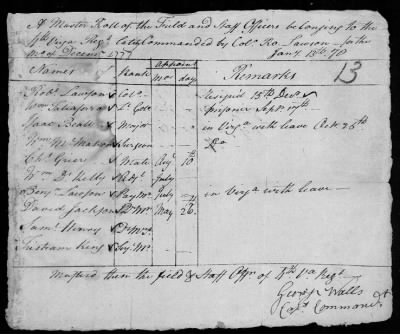 A Muster Roll of the Field and Staff Officers belonging to the
4th Virga Regt. lately Commanded by Colo. Ro. Lawson for the
Mo. of Decemr. 1777 Jany. 13th. 78
13
Names Rank Appoint Mo. day Remarks
Robt. Lawson Colo. Resign'd 15th Decr.
Wm. Taliaferro Lt. Colo. prisoner Septr. 11th
Isaac Beall Major in Virga. with leave Octr. 26th
Wm. Surgeon Do.
Chs. Greer Mate Augt. 10th
Wm. D. Kelly Adjt. July
Benj. Lawson PayMr. July in Virga. with leave
David Jackson Mr. May 26
Saml. Henry
Tristram King
Muster'd then the field & Staff Offrs. of 4th Va. Regt.
George Walls
Capt. Commandt.